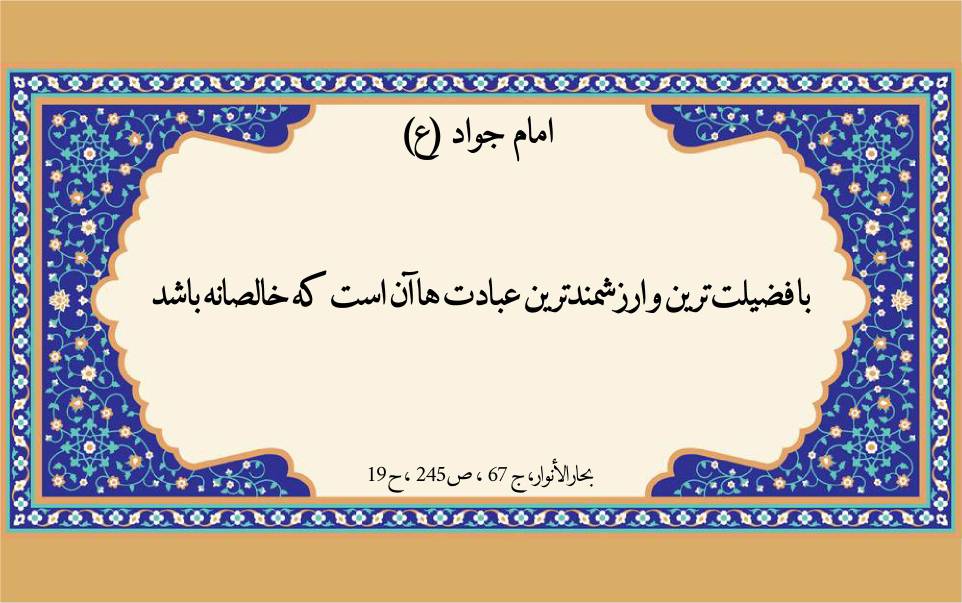 امام جواد (ع)
با فضیلت ترین و ارزشمندترین عبادت ها آن است که خالصانه باشد
بحارالأنوار، ج 67 ، ص 245 ، ح 19